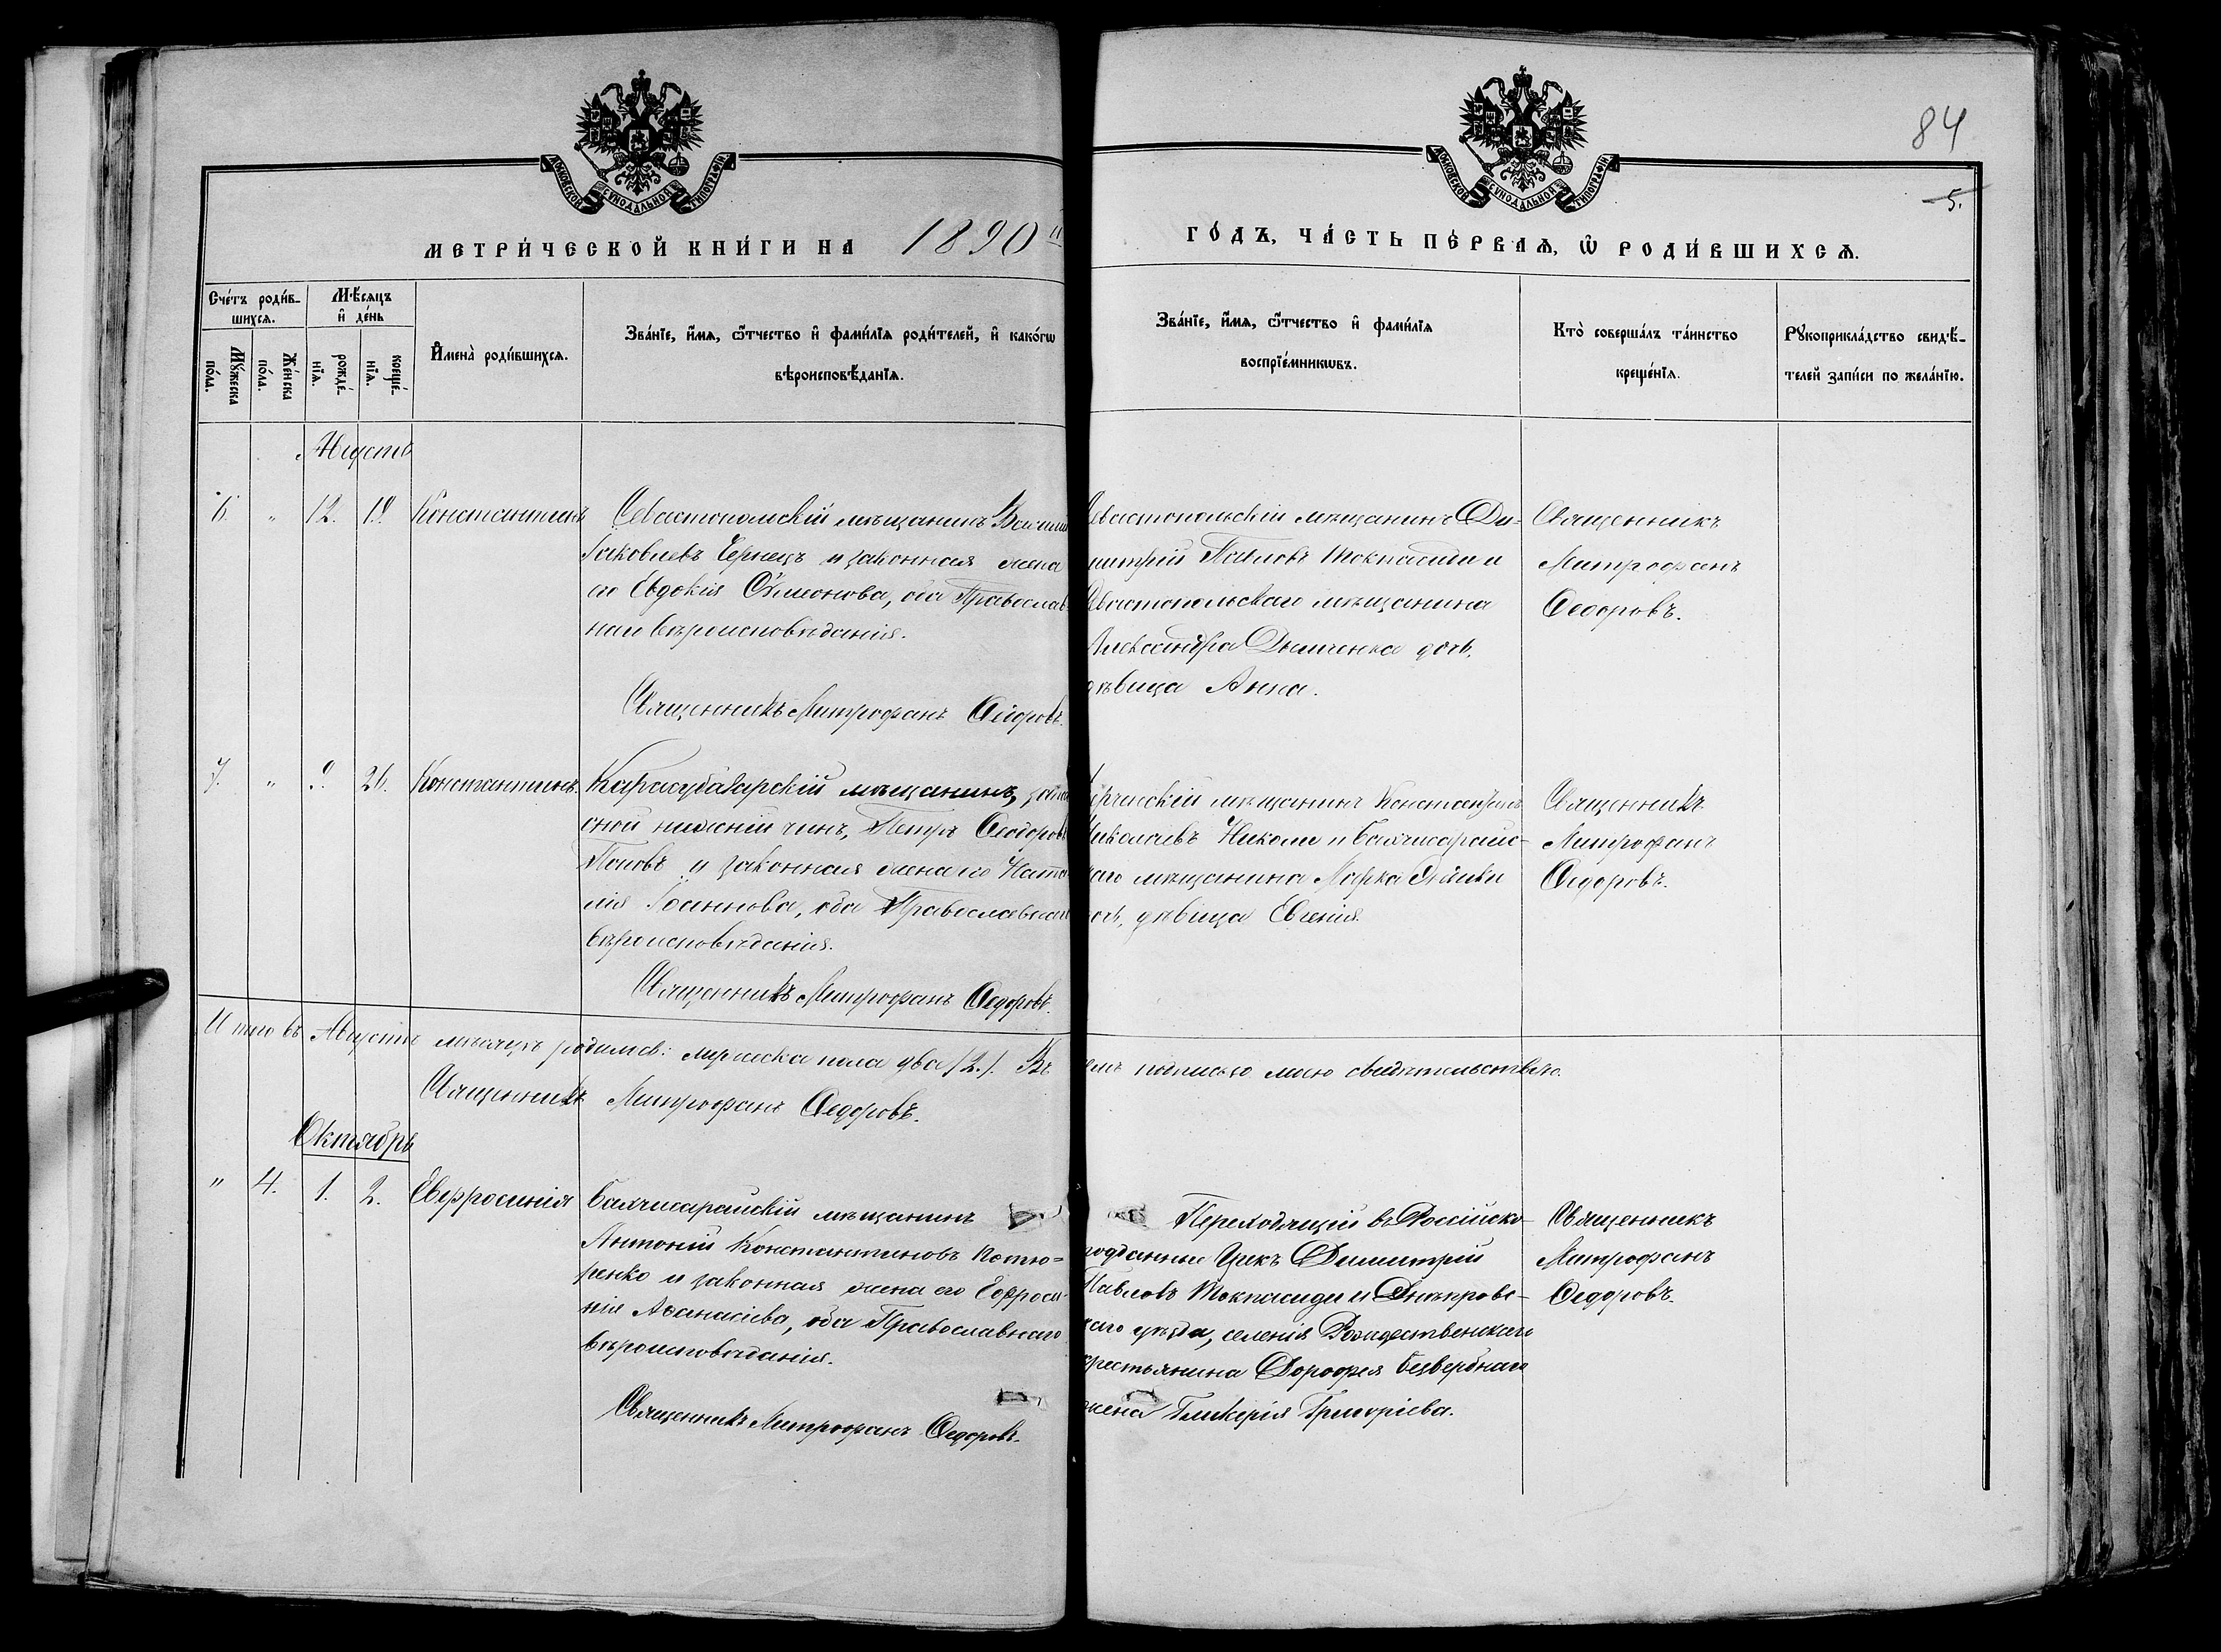 84
5.
МОСКОВСКОЙ СѴНОДАЛЬНОЙ ТИПОГРАФІИ
МОСКОВСКОЙ СѴНОДАЛЬНОЙ ТИПОГРАФІИ
МЕТРИ́ЧЕСКОЙ КНИ́ГИ НА 1890
ГО́ДЪ, ЧА́СТЬ ПЕ́РВАѦ, Ѡ҆ РОДИ́ВШИХСѦ.
Сче́тъ роди́в-
шихсѧ.
Мѹ́жеска
по́ла.
Же́нска
по́ла.
Мѣ́сѧцъ
и҆ де́нь
рожде́-
нїѧ.
креще́-
нїѧ.
И҆мена̀ роди́вшихсѧ.
Зва́нїе, и҆́мѧ, ѻ҆́тчество и҆ фами́лїѧ роди́телей, и҆ како́гѡ
вѣроисповѣ́данїѧ.
Зва́нїе, и҆́мѧ, ѻ҆́тчество и҆ фами́лїѧ
воспрїе́мникѡвъ.
Кто̀ соверша́лъ та́инство
креще́нїѧ.
Рѹкоприкла́дство свидѣ́-
телей за́писи по жела́нїю.
Августъ
6. " 12. 19. Константинъ
Севастопольскій мѣщанинъ
Іаковлевъ Чернецъ и законная жена
его Евдокія Сѵмеонова, оба Православ-
наго вѣроисповѣданія.
Священникъ Митрофанъ Ѳедоровъ.
Севастопольскій мѣщанинъ Ди-
митрій Павловъ Токпасиди и
Севастопольскаго мѣщанина
Александра Дымченка дочь,
дѣвица Анна.
Священникъ
Митрофанъ
Ѳеодоровъ.
7. " 9. 26. Константинъ.
Карасубазарскій мѣщанинъ, запа
сной нижній чинъ, Петръ Ѳеодоровъ
Поповъ и законная жена его Ната
лія Іоаннова, оба Православнаго
вѣроисповѣданія.
Священникъ Митрофанъ Ѳедоровъ.
мѣщанинъ Константинъ
Николаевъ Николи и Бахчисарайс-
каго мѣщанина Марка
дочь, дѣвица Евгенія.
Священникъ
Митрофанъ
Ѳедоровъ.
Итого въ Августѣ мѣсяцѣ родилось: мужеска пола два /2./. Въ
чемъ подписью моею свидѣтельствую.
Священникъ Митрофанъ Ѳедоровъ.
Октябрь
" 4. 1. 2. Евфросинія
Бахчисарайскій мѣщанинъ
Антоній Константиновъ Котю-
ренко и законная жена его Евфроси-
нія Аѳанасіева, оба Православнаго
вѣроисповѣданія.
Священникъ Митрофанъ Ѳедоровъ.
Переходящій въ Россійско-
подданные Грекъ Димитрій
Павловъ Токпасиди и Днѣпровс-
каго уѣзда, селенія Рождественскаго
крестьянина Дорофея Безвербнаго
жена Гликерія Григоріева.
Священникъ
Митрофанъ
Ѳедоровъ.